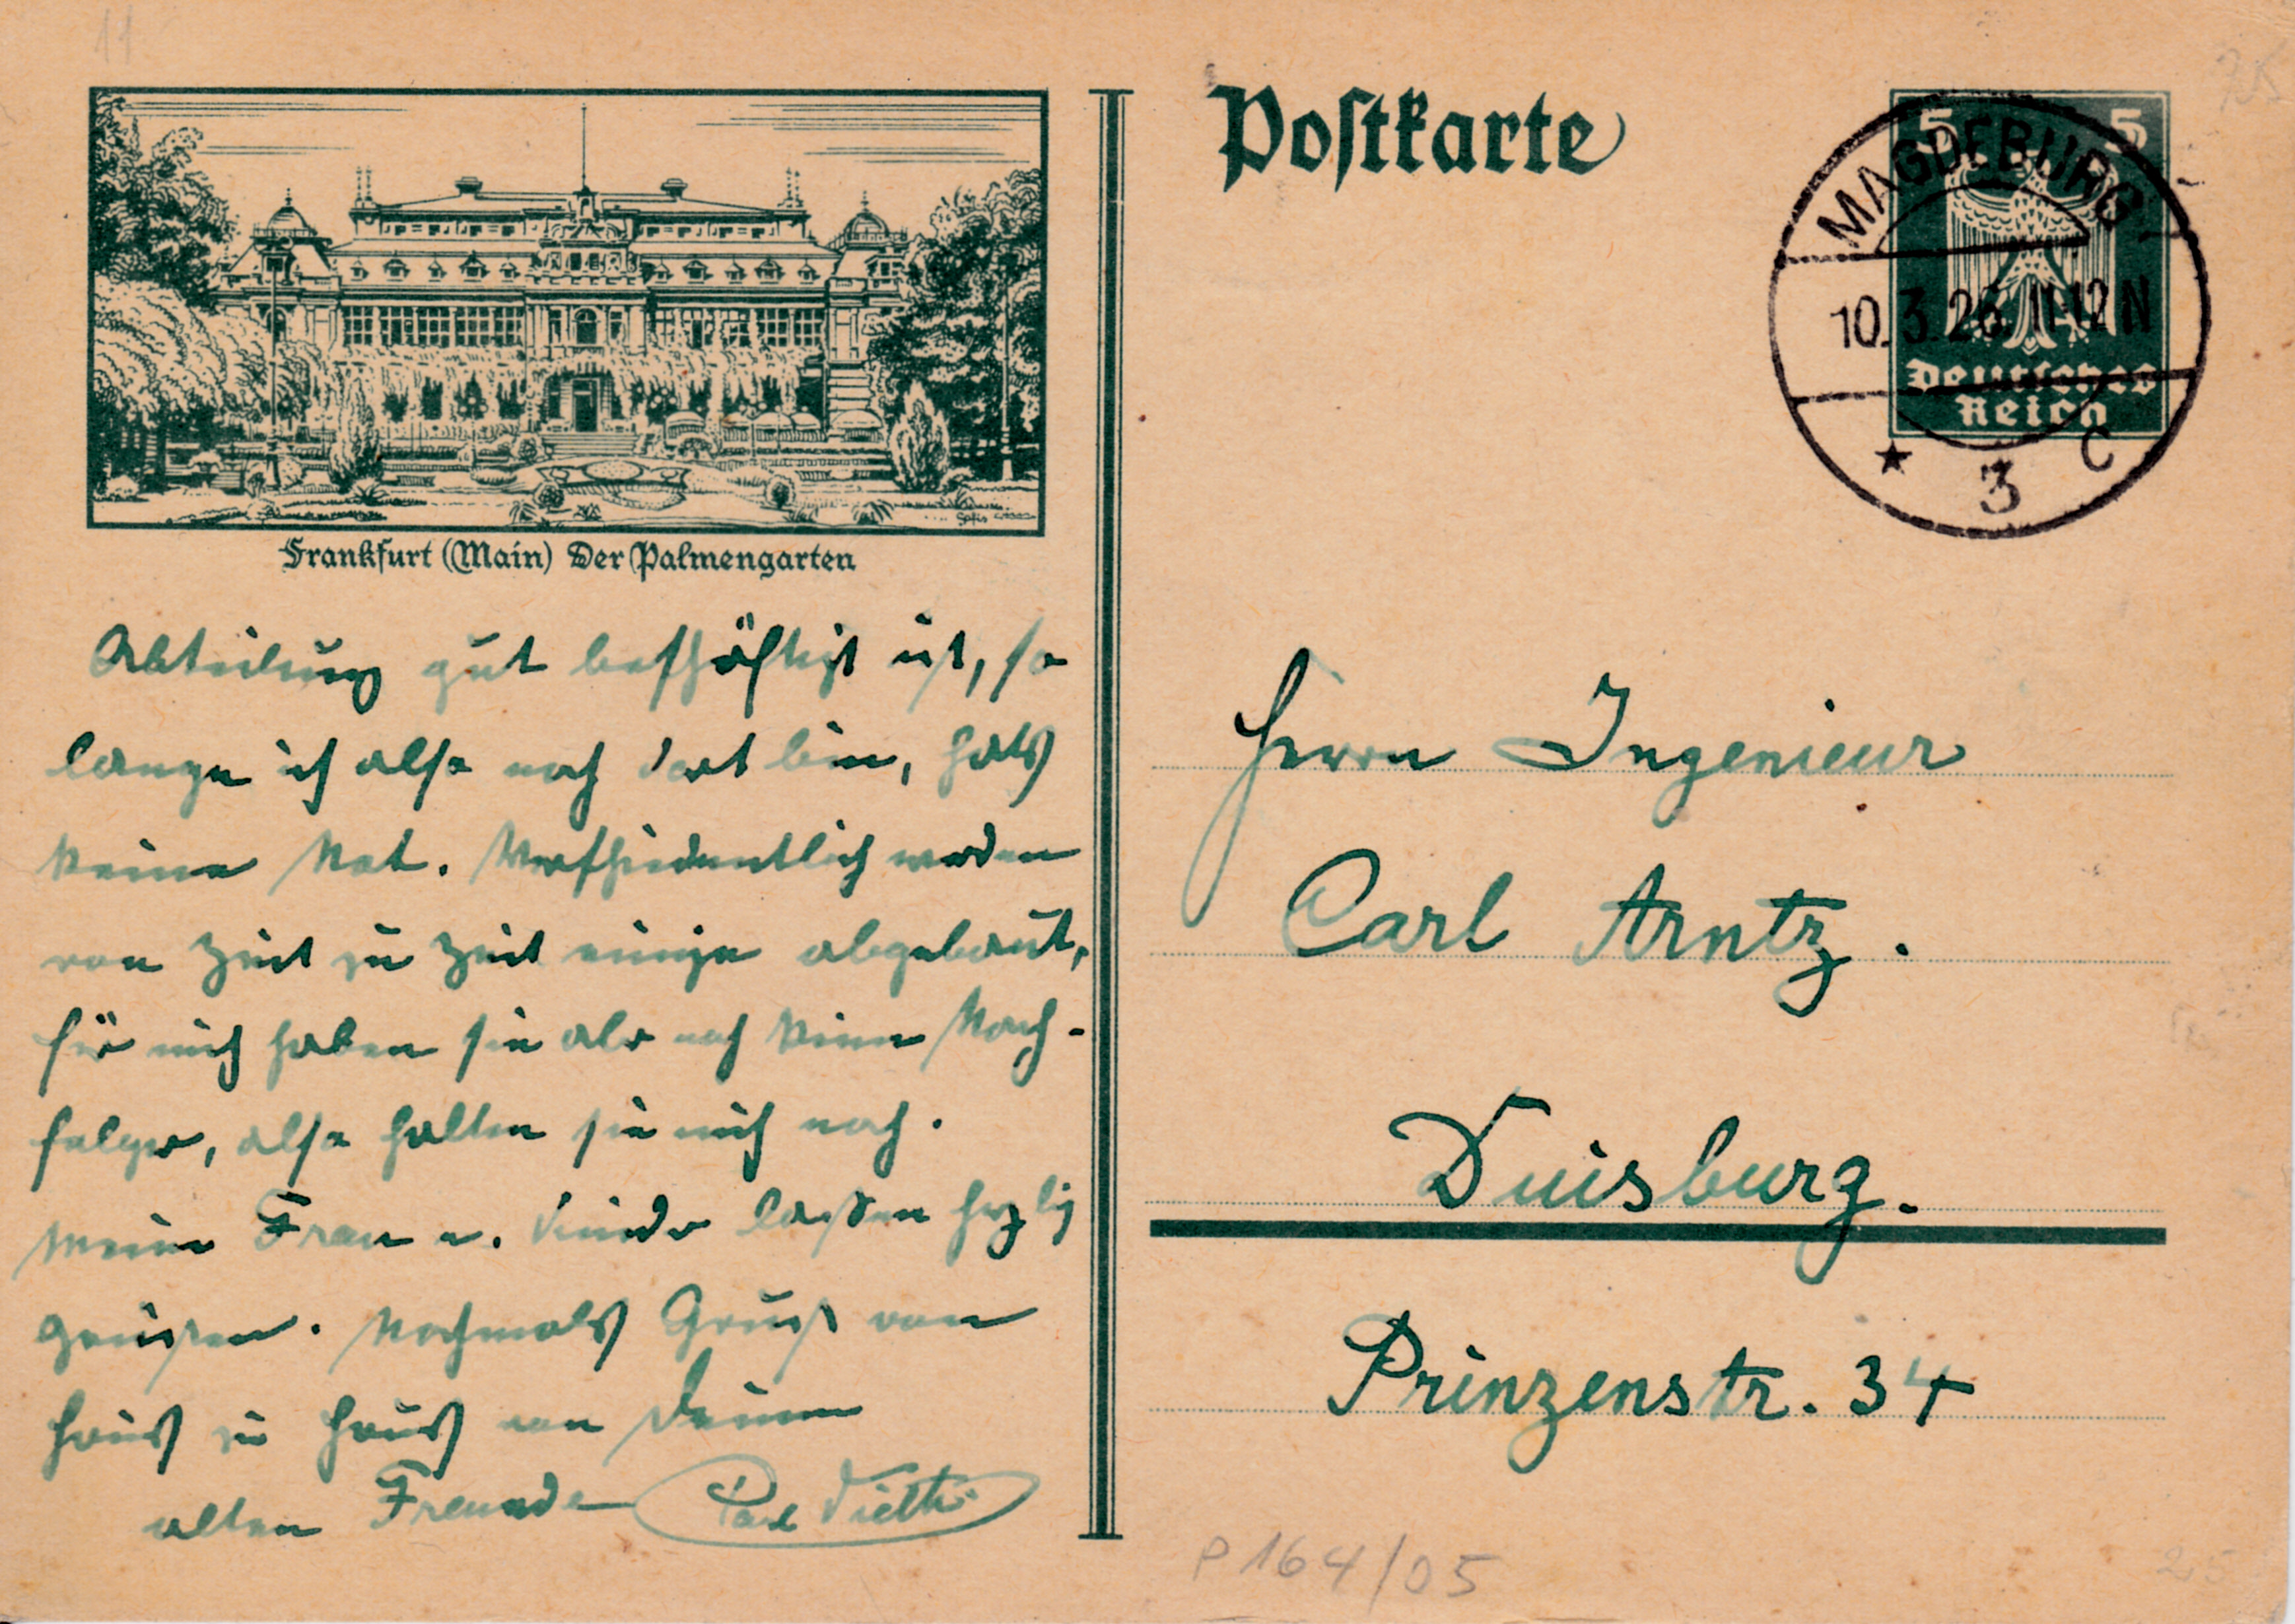 Postkarte
5 5
Deutsches
Reich
MAGDEBURG
10.3.26. 11-12 N
* 3 c
Frankfurt (Main) Der Palmengarten
Abteilung gut beschäftigt ist, so
lange ich also noch dort bin, hats
keine Not. Verschiedentlich werden
von Zeit zu Zeit einige abgebaut,
für mich haben sie aber noch keinen Nach-
folger, also halten sie mich noch.
Meine Frau u. Kinder lassen herzlich
grüssen. Nochmals Gruß von
Haus zu Haus von Deinem
alten Freunde Paul
Herrn Ingenieur
Carl Arntz.
Duisburg.
Prinzenstr. 34
P 164/05